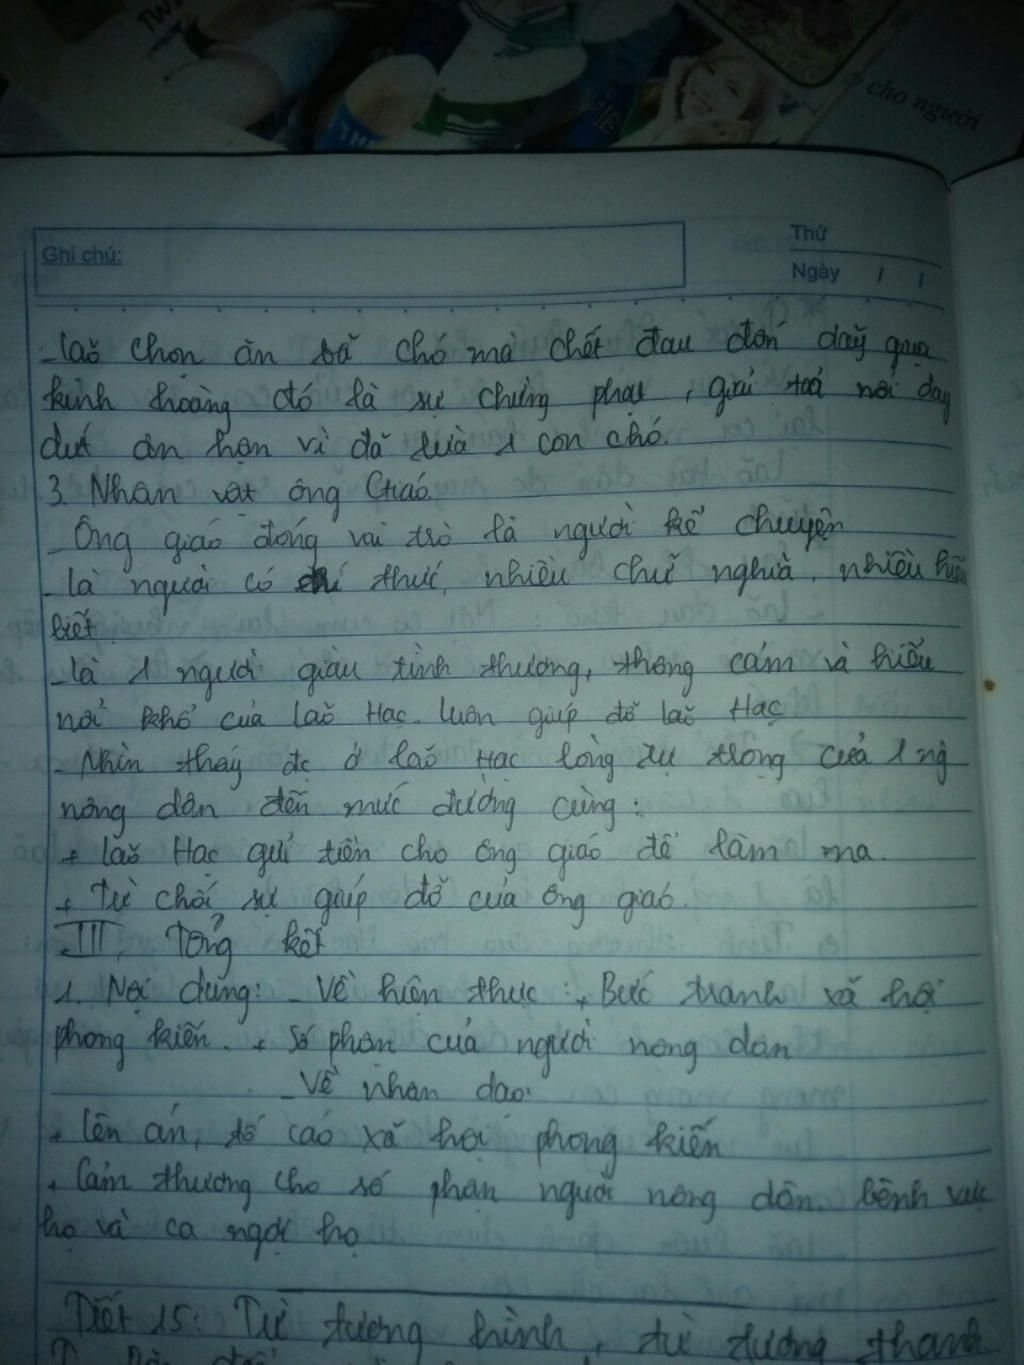 cho người
Ghi chú:
Thứ
Ngày / /
- lão chọn ăn bả chó mà chết đau đớn dầy qua
kinh hoàng đó là sự chừng phạt, giải toả nỗi day
dứt ân hận vì đã lừa 1 con chó.
3. Nhân vật ông Giáo.
- Ông giáo đóng vai trò là người kể chuyện
- là người có thức, nhiều chữ nghĩa, nhiều hiểu
biết
- là 1 người giàu tình thương, thông cảm và hiểu
nỗi khổ của lão Hạc. luôn giúp đỡ lão Hạc
- Nhìn thấy đc ở lão Hạc lòng tự trọng của 1 ng
nông dân đến mức đường cùng:
+ lão Hạc gửi tiền cho ông giáo để làm ma.
+ Từ chối sự giúp đỡ của ông giáo.
III, Tổng kết
1. Nội dung: - Về hiện thực: + Bức tranh xã hội
phong kiến. + số phận của người nông dân
- Về nhân đạo:
+ lên án, tố cáo xã hội phong kiến
+ Cảm thương cho số phận người nông dân. bênh vực
họ và ca ngợi họ
Tiết 15: Từ tượng hình, từ tượng thanh